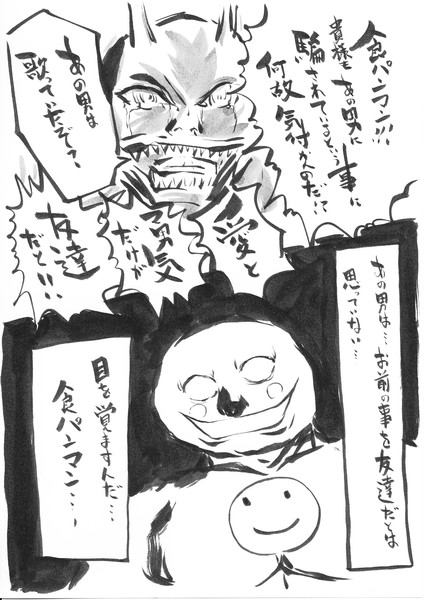 食パンマン!!!
貴様もあの男に
騙されているという事に
何故気付かんのだ!?
あの男は
歌っていたぞ?
愛と
勇気
だけが
友達
だと!!!
あの男は…お前の事を友達だとは
思っていない…
目を覚ますんだ…
食パンマン…